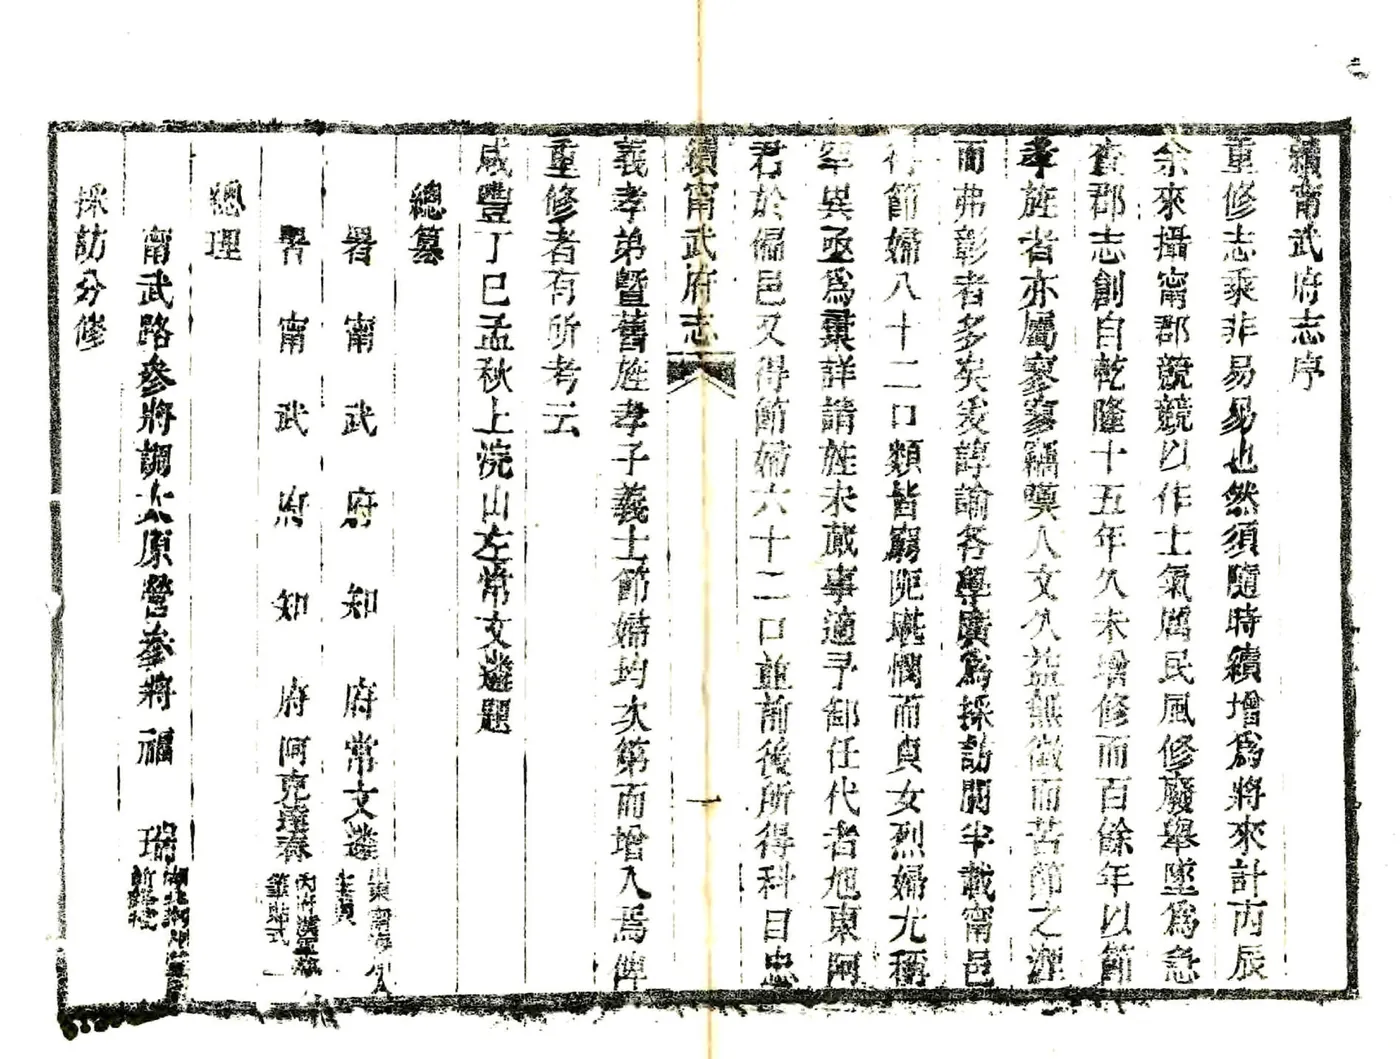 續甯武府志序
重修志乘非易易也然須隨時續增爲將來計丙辰
余來攝甯郡競競以作士氣厲民風修廢舉墜爲急
查郡志創自乾隆十五年久未增修而百餘年以節
孝旌者亦屬寥寥竊嘆人文久益無徵而苦節之湮
而弗彰者多矣爰諄諭各學廣爲採訪閱半載甯邑
得節婦八十二口類皆窮阨堪憫而貞女烈婦尤稱
罕異亟爲彙詳請旌未蕆事適予卸任代者旭東阿
君於偏邑又得節婦六十二口並前後所得科目忠
續甯武府志
一
義孝弟暨舊旌孝子義士節婦均次第而增入焉俾
重修者有所考云
咸豐丁巳孟秋上浣山左常文遴題
總纂
署甯武府知府常文遴山東甯海州人
署甯武府知府阿克達春
總理
甯武路參將調太原營參將福瑞
採訪分修